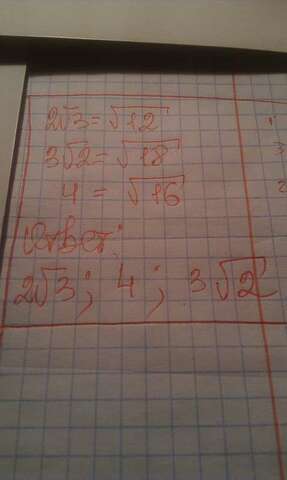 2√3 = √12
3√2 = √18
4 = √16
Ответ:
2√3 ; 4 ; 3√2